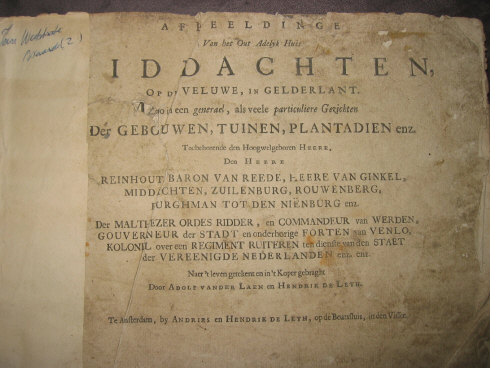 AFBEELDINGE
Van het Out Adelyk Huis
IDDACHTEN,
OP DE VELUWE, IN GELDERLANT.
zo in een generael, als veele particuliere Gezichten
Der GEBOUWEN, TUINEN, PLANTADIEN enz.
Toebehorende den Hoogwelgeboren HEERE,
Den HEERE
REINHOUT BARON VAN REEDE, HEERE VAN GINKEL,
MIDDACHTEN, ZUILENBURG, ROUWENBERG,
BURGHMAN TOT DEN NIENBURG enz.
Der MALTHEZER ORDES RIDDER, en COMMANDEUR van WERDEN,
GOUVERNEUR der STADT en onderhorige FORTEN van VENLO,
KOLONEL over een REGIMENT RUITEREN ten dienste van den STAET
der VEREENIGDE NEDERLANDEN enz. enz.
Naer 't leven getekent en in 't Koper gebraght
Door ADOLF VANDER LAEN en HENDRIK DE LETH.
Te Amsterdam, by ANDRIES en HENDRIK DE LETH, op de Beurssluis, in den Visser.